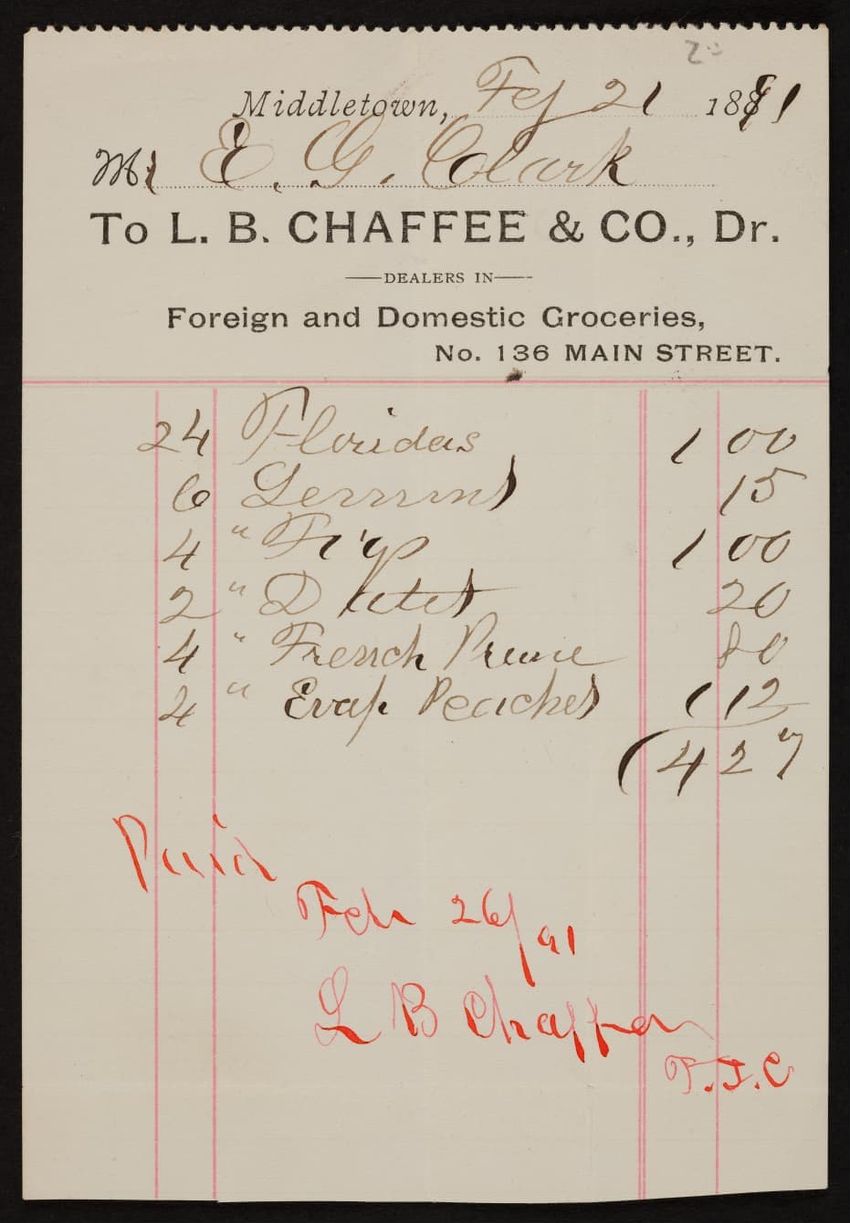 Middletown, Feb 21 1891
Mr E. G. Clark
To L. B. CHAFFEE & CO., Dr.
DEALERS IN
Foreign and Domestic Groceries,
No. 136 MAIN STREET.
24 Floridas 1 00
6 Lemmns 15
4 " Figs 1 00
2 " Dates 20
4 " French Prune 80
4 " Evap Peaches 1 12
4 27
Paid
Feb 26/91
L B Chaffee
T.J.C